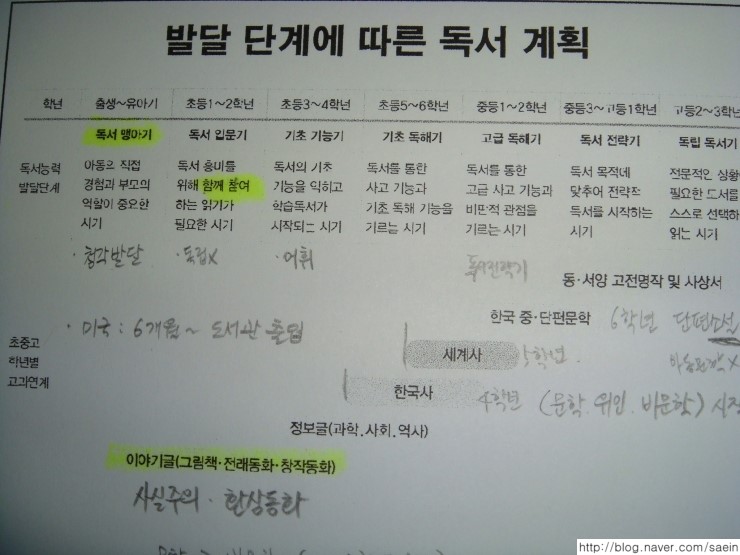 발달 단계에 따른 독서 계획
학년 출생~유아기 초등1~2학년 초등3~4학년 초등5~6학년 중등1~2학년 중등3~고등1학년 고등2~3학년
독서 맹아기 독서 입문기 기초 기능기 기초 독해기 고급 독해기 독서 전략기 독립 독서기
독서능력 아동의 직접 독서 흥미를 독서의 기초 독서를 통한 독서를 통한 독서 목적에 전문적인 상황
발달단계 경험과 부모의 위해 함께 참여 기능을 익히고 사고 기능과 고급 사고 기능과 맞추어 전략적 필요한 도서를
역할이 중요한 하는 읽기가 학습독서가 기초 독해 기능을 비판적 관점을 독서를 시작하는 스스로 선택하
시기 필요한 시기 시작되는 시기 기르는 시기 기르는 시기 시기 읽는 시기
· 청각발달 · 독립X · 어휘
동·서양 고전명작 및 사상서
· 미국 : 6개월 ~ 도서관 출입 한국 중·단편문학 6학년 단편소설
초중고 세계사 5학년.
학년별
교과연계 한국사 4학년 (문학. 위인. 비문학) 시작
정보글(과학.사회.역사)
이야기글(그림책·전래동화·창작동화)
사실주의 · 환상동화
http://blog.naver.com/saein